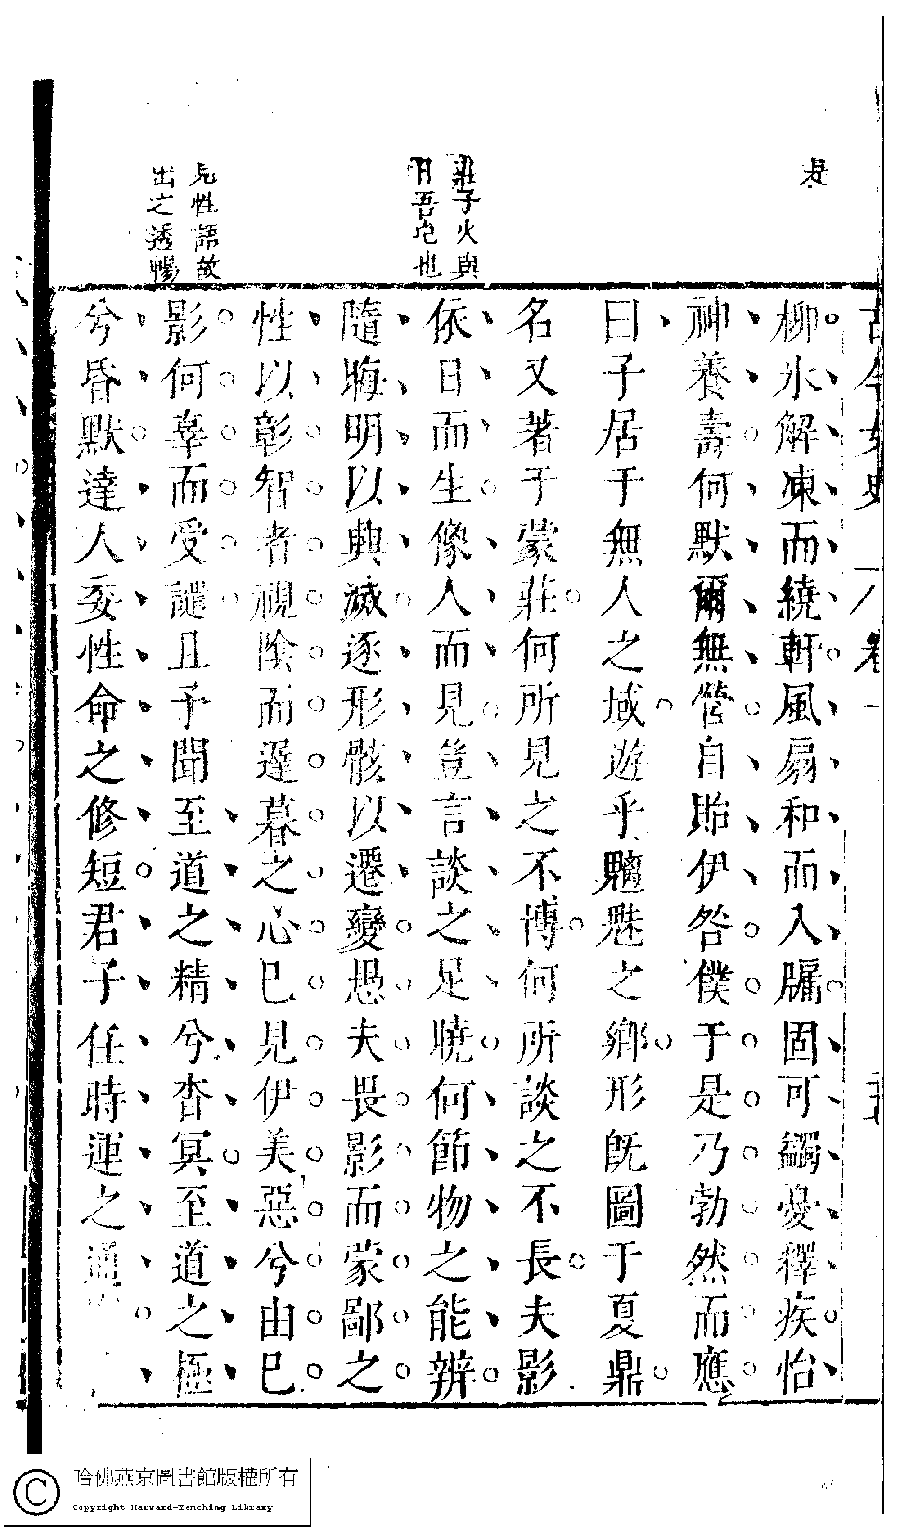 古今女史 卷一
柳氷解凍而繞軒風扇和而入牖固可蠲憂釋疾怡
神養壽何默爾無營自貽伊咎僕于是乃勃然而應
曰子居于無人之域遊乎魑魅之鄉形旣圖于夏鼎
名又著于蒙莊何所見之不博何所談之不長夫影
依日而生像人而見豈言談之足曉何節物之能辨
隨晦明以興滅逐形骸以遷變愚夫畏影而蒙鄙之
性以彰智者視陰而遲暮之心已見伊美惡兮由己
影何辜而受譴且予聞至道之精兮杳冥至道之極
兮昏默達人委性命之修短君子任時運之通
莊子火與
日吾屯也
見性語故
出之透暢
哈佛燕京圖書館版權所有
Copyright Harvard-Yenching Library